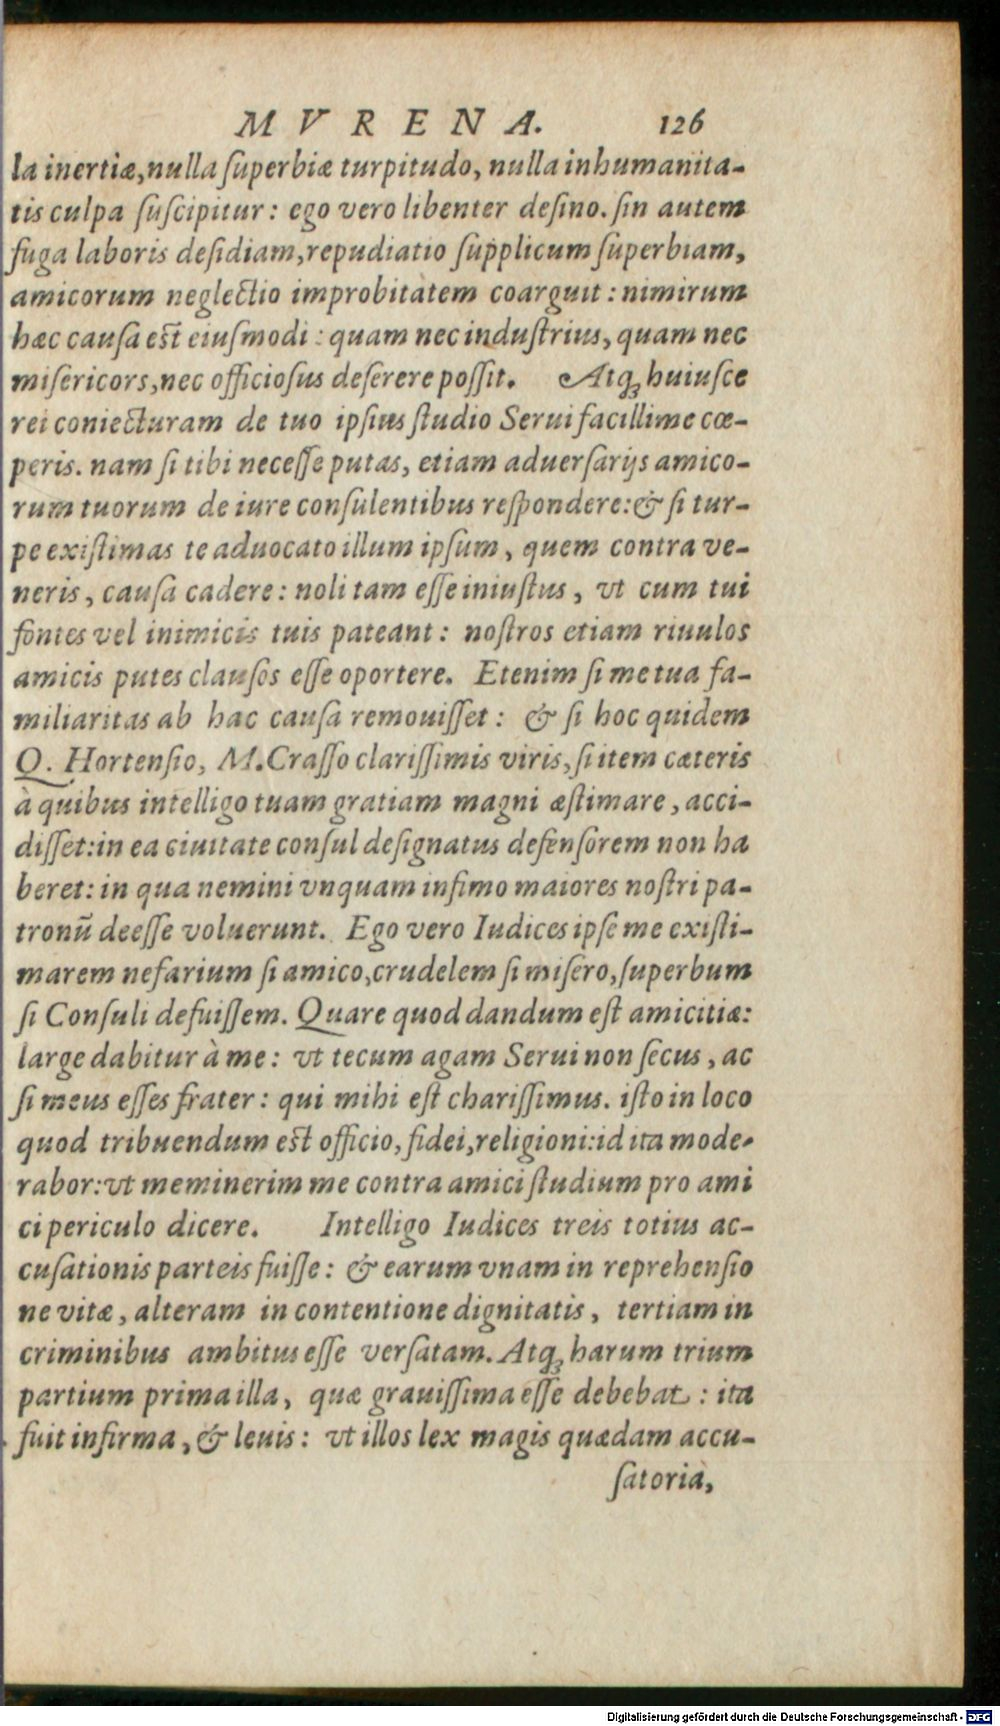 MVRENA. 126
la inertiæ, nulla ſuperbiæ turpitudo, nulla inhumanita-
tis culpa ſuſcipitur: ego vero libenter deſino. ſin autem
fuga laboris deſidiam, repudiatio ſupplicum ſuperbiam,
amicorum neglectio improbitatem coarguit: nimirum
hæc cauſa eſt eiuſmodi: quam nec induſtrius, quam nec
miſericors, nec officioſus deſerere poſſit. Atq; huiuſce
rei coniecturam de tuo ipſius ſtudio Serui facillime cœ-
peris. nam ſi tibi neceſſe putas, etiam aduerſarijs amico-
rum tuorum de iure conſulentibus reſpondere: & ſi tur-
pe exiſtimas te aduocato illum ipſum, quem contra ve-
neris, cauſa cadere: noli tam eſſe iniuſtus, vt cum tui
fontes vel inimicis tuis pateant: noſtros etiam riuulos
amicis putes clauſos eſſe oportere. Etenim ſi me tua fa-
miliaritas ab hac cauſa remouiſſet: & ſi hoc quidem
Q. Hortenſio, M. Craſſo clariſſimis viris, ſi item cæteris
à quibus intelligo tuam gratiam magni æſtimare, acci-
diſſet: in ea ciuitate conſul deſignatus defenſorem non ha
beret: in qua nemini vnquam infimo maiores noſtri pa-
tronū deeſſe voluerunt. Ego vero Iudices ipſe me exiſti-
marem nefarium ſi amico, crudelem ſi miſero, ſuperbum
ſi Conſuli defuiſſem. Quare quod dandum eſt amicitiæ:
large dabitur à me: vt tecum agam Serui non ſecus, ac
ſi meus eſſes frater: qui mihi eſt chariſſimus. iſto in loco
quod tribuendum eſt officio, fidei, religioni: id ita mode-
rabor: vt meminerim me contra amici ſtudium pro ami
ci periculo dicere. Intelligo Iudices treis totius ac-
cuſationis parteis fuiſſe: & earum vnam in reprehenſio
ne vitæ, alteram in contentione dignitatis, tertiam in
criminibus ambitus eſſe verſatam. Atq; harum trium
partium prima illa, quæ grauiſſima eſſe debebat: ita
fuit infirma, & leuis: vt illos lex magis quædam accu-
ſatoria,
Digitalisierung gefördert durch die Deutsche Forschungsgemeinschaft - DFG